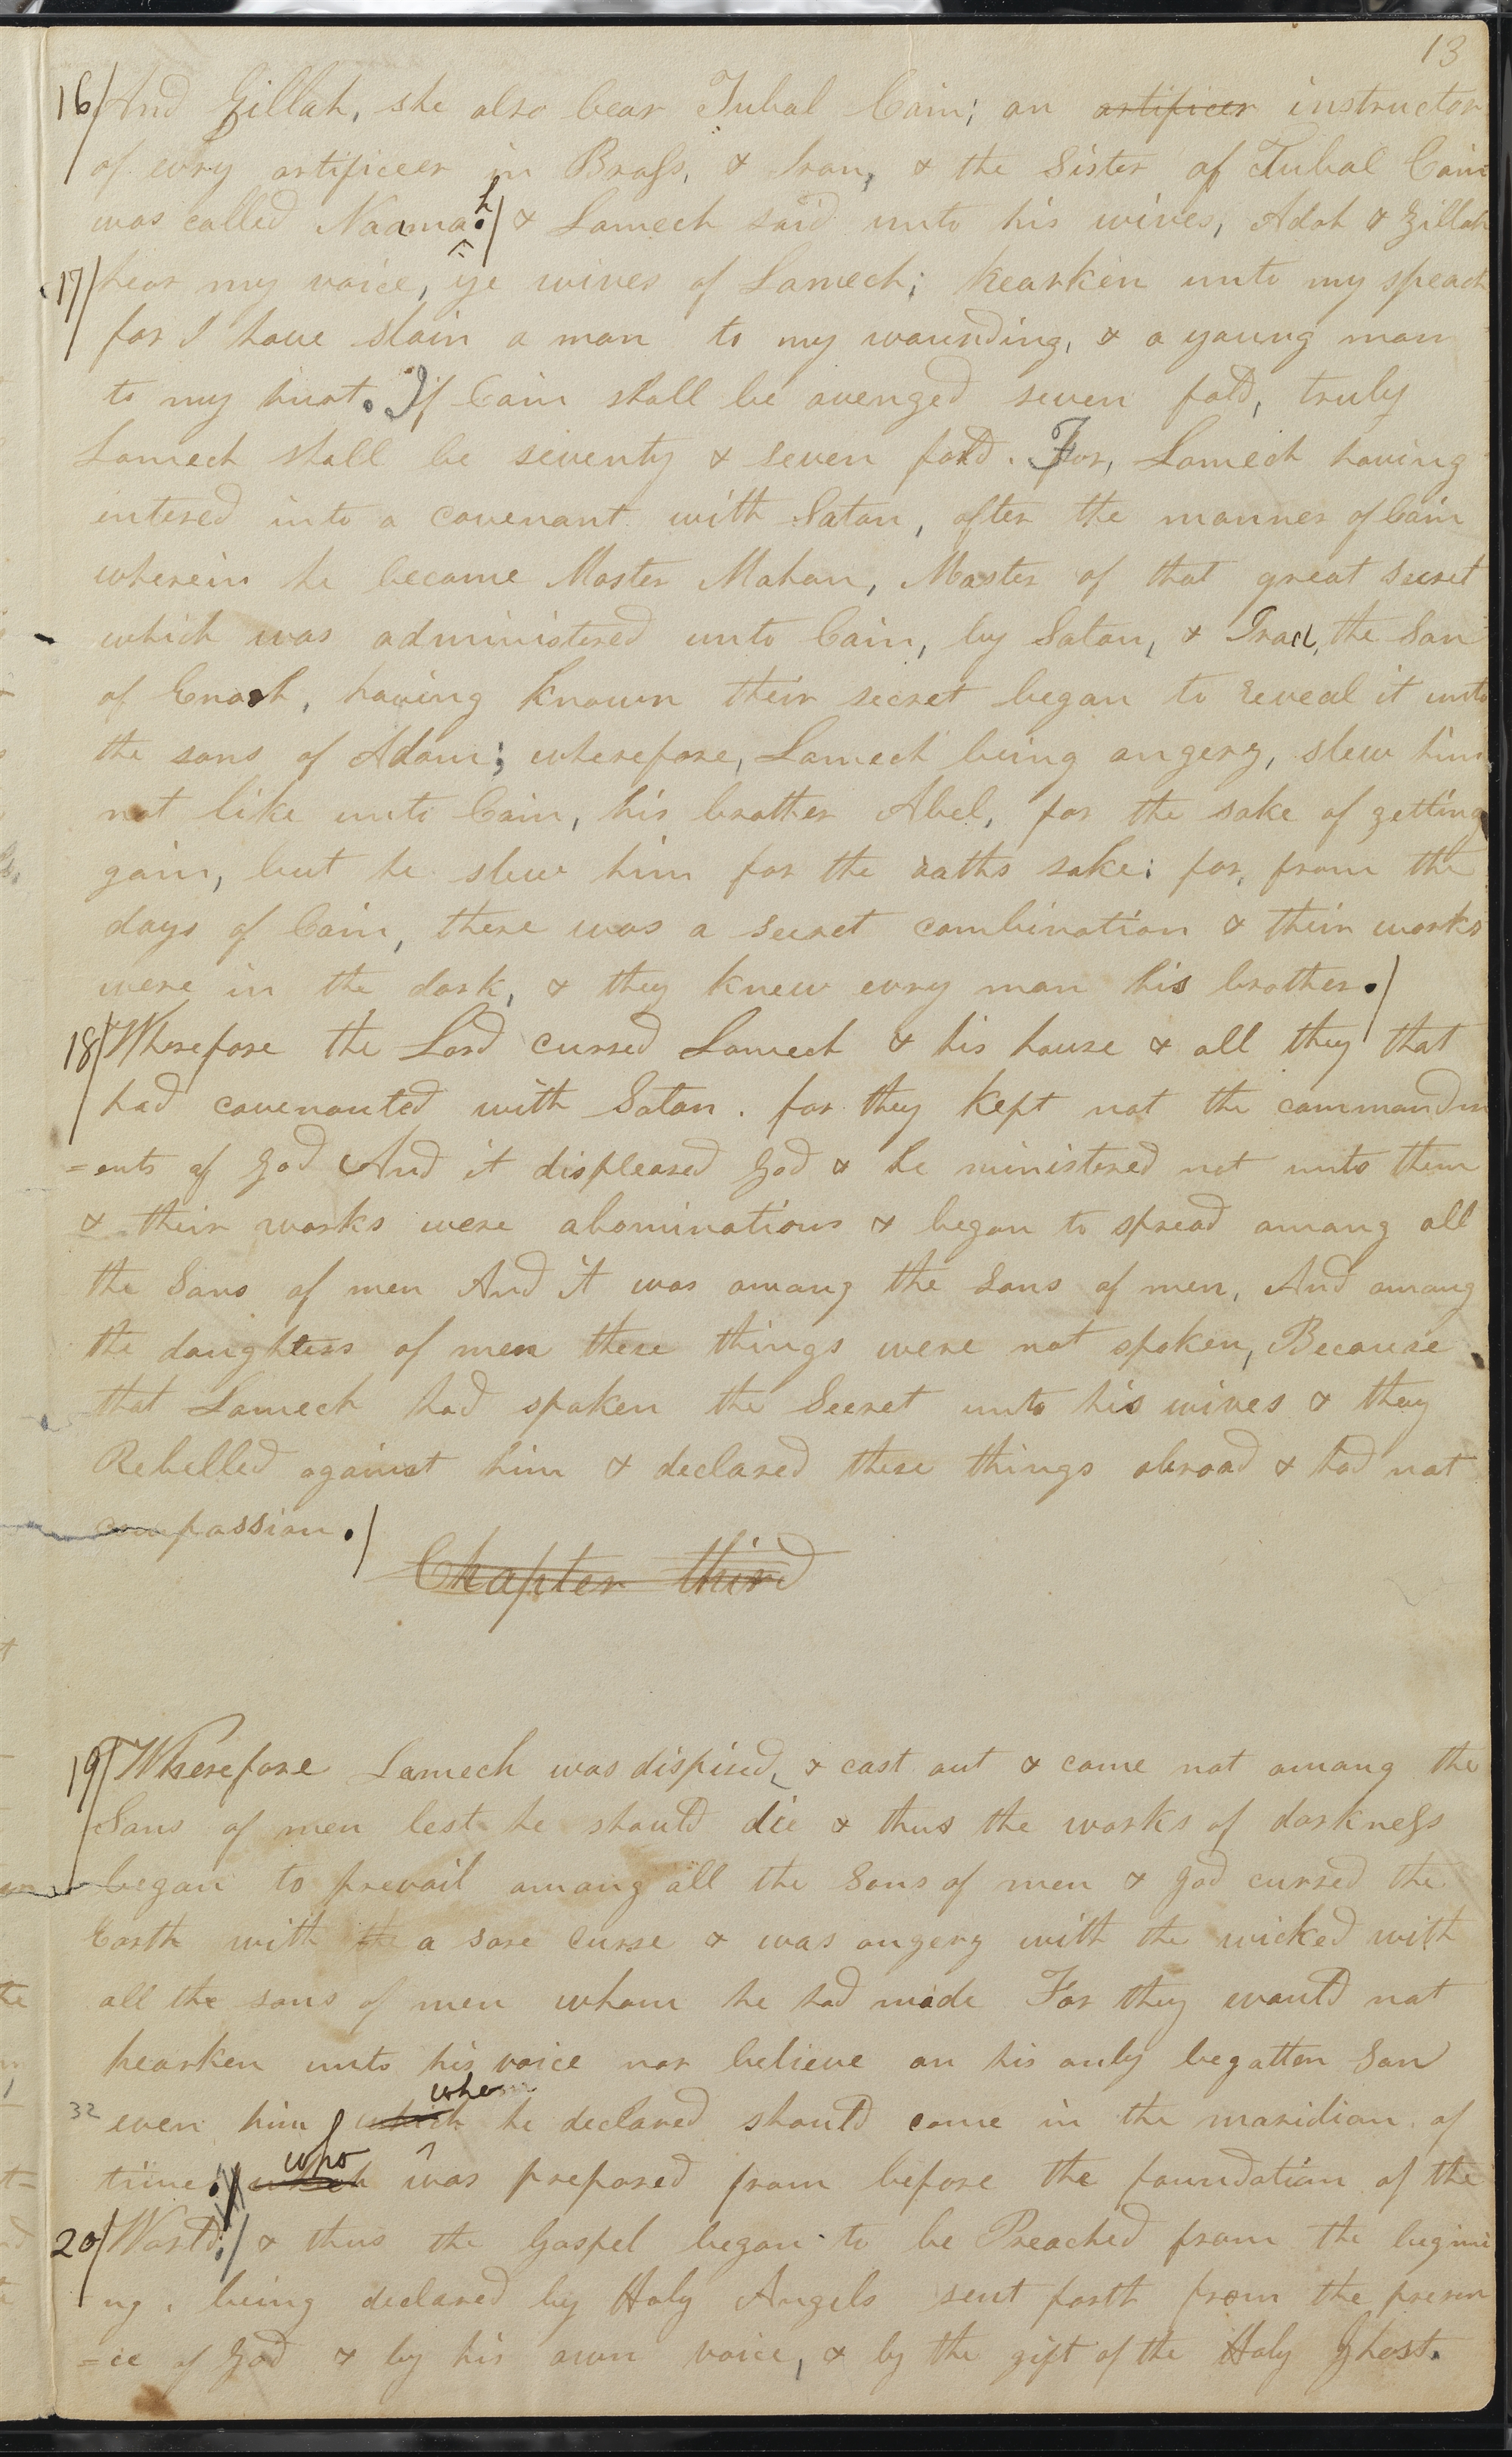 13
16/ And Zillah, she also bear Tubal Cain; an artificer instructor
of evry artificeer in Brass, & Iron, & the Sister of Tubal Cain
was called Naamah./ & Lamech said unto his wives, Adah & Zillah
17/ hear my voice, ye wives of Lamech; hearken unto my speach
for I have slain a man to my wounding, & a young man
to my hurt. If Cain shall be avenged seven fold, truly
Lamech shall be seventy & seven fold. For, Lamech having
entered into a covenant with Satan, after the manner of Cain
wherein he became Master Mahan, Master of that great secret
which was administered unto Cain, by Satan, & Irad, the Son
of Enoch, having known their secret began to reveal it unto
the sons of Adam; wherefore, Lamech being angery, slew him
not like unto Cain, his brother Abel, for the sake of getting
gain, but he slew him for the oaths sake: for, from the
days of Cain, there was a secret combination & their works
were in the dark, & they knew evry man his brother./
18/ Wherefore the Lord cursed Lamech & his house & all they that
had covenanted with Satan. for they kept not the commandm
=ents of God And it displeased God & he ministered not unto them
& their works were abominations & began to spread among all
the Sons of men And it was among the Sons of men, And among
the daughters of men these things were not spoken, Because
that Lamech had spoken the Secret unto his wives & they
Rebelled against him & declared these things abroad & had not
compassion./
Chapter third
19/ Wherefore Lamech was dispised, & cast out & came not among the
Sons of men lest he should die & thus the works of darkness
began to prevail among all the Sons of men & God cursed the
Earth with the a sore curse & was angery with the wicked with
all the sons of men whom he had made For they would not
hearken unto his voice nor believe on his only begotten Son
whom
32 even him which he declared should come in the maridian of
who
time./ which was prepared from before the foundation of the
20/ World:/ & thus the Gospel began to be Preached from the beginni
ng, being declared by Holy Angels sent forth from the presen
=ce of God & by his own voice, & by the gift of the Holy Ghost.